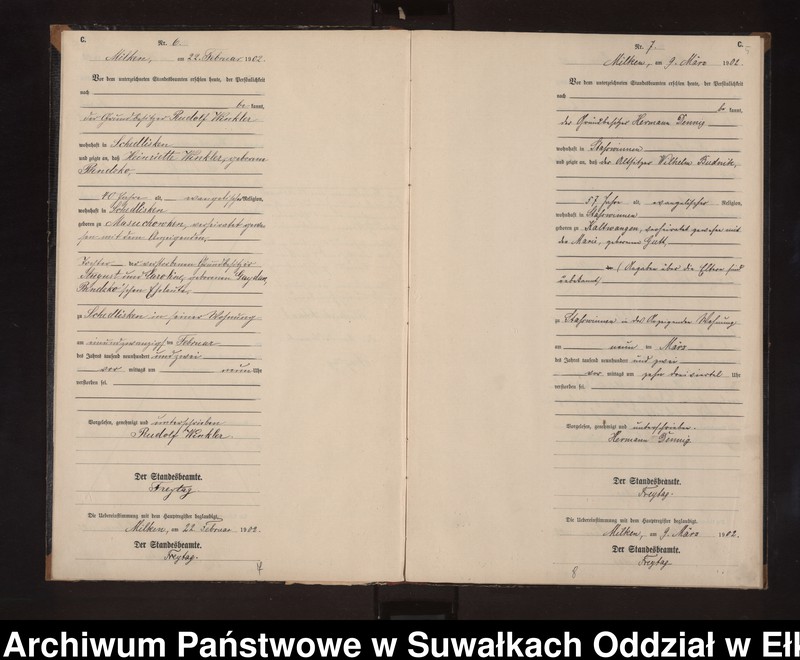 C.
Nr. 6.
Milken, am 22. Februar 1902.
Vor dem unterzeichneten Standesbeamten erschien heute, der Persönlichkeit
nach
be kannt,
der Grundbesitzer Rudolf Winkler
wohnhaft in Schedlisken
und zeigte an, daß Henriette Winkler, geborene
Bendzko,
40 Jahre alt, evangelischer Religion,
wohnhaft in Schedlisken
geboren zu Masuchowken, verheiratet gewe-
sen mit dem Anzeigenden,
Tochter der verstorbenen Grundbesitzer
August und Caroline, geborenen Gayduk,
Bendzko'schen Eheleute,
zu Schedlisken in seiner Wohnung
am Februar
des Jahres tausend neunhundert und zwei
vor mittags um neun Uhr
verstorben sei.
Vorgelesen, genehmigt und unterschrieben
Rudolf Winkler
Der Standesbeamte.
Freytag.
Die Uebereinstimmung mit dem Hauptregister beglaubigt.
Milken, am 22. Februar 1902.
Der Standesbeamte.
Freytag.
4
Nr. 7.
C.
Milken, am 9. März 1902.
Vor dem unterzeichneten Standesbeamten erschien heute, der Persönlichkeit
nach
be kannt,
der Grundbesitzer Hermann Dennig
wohnhaft in Staßwinnen
und zeigte an, daß der Altsitzer Wilhelm Budnik,
57 Jahre alt, evangelischer Religion,
wohnhaft in Staßwinnen
geboren zu Kaltwangen, verheiratet gewesen mit
der Marie, geborenen Gutt,
(Angaben über die Eltern sind
unbekannt)
zu Staßwinnen in des Anzeigenden Wohnung
am neun ten März
des Jahres tausend neunhundert und zwei
vor mittags um zehn dreiviertel Uhr
verstorben sei.
Vorgelesen, genehmigt und unterschrieben.
Hermann Dennig
Der Standesbeamte.
Freytag.
Die Uebereinstimmung mit dem Hauptregister beglaubigt.
Milken, am 9. März 1902.
Der Standesbeamte.
Freytag.
8
Archiwum Państwowe w Suwałkach Oddział w Ełk